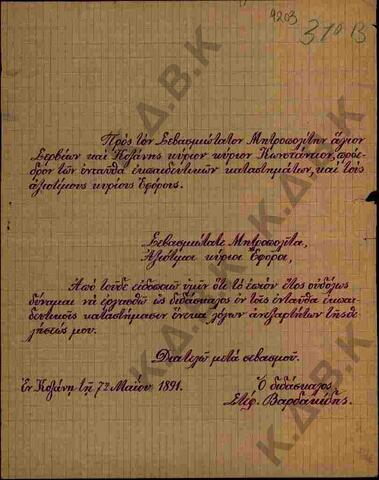 9203
31α B
Πρὸς τὸν Σεβασμιώτατον Μητροπολίτην ἅγιον
Σερβίων καὶ Κοζάνης κύριον κύριον Κωνστάντιον, πρόε-
δρον τῶν ἐνταῦθα ἐκπαιδευτικῶν καταστημάτων, καὶ τοὺς
ἀξιοτίμους κυρίους Ἐφόρους.
Σεβασμιώτατε Μητροπολῖτα,
Ἀξιότιμοι κύριοι Ἔφοροι,
Ἀπὸ τοῦδε εἰδοποιῶ ὑμῖν ὅτι τὸ ἐπιὸν ἔτος οὐδόλως
δύναμαι νὰ ἐργασθῶ ὡς διδάσκαλος ἐν τοῖς ἐνταῦθα ἐκπαι-
δευτικοῖς καταστήμασιν ἕνεκα λόγων ἀνεξαρτήτων τῆς θε-
λήσεώς μου.
Διατελῶ μετὰ σεβασμοῦ.
Ἐν Κοζάνῃ τῇ 7ῃ Μαΐου 1891.
Ὁ διδάσκαλος
Στέφ. Βαρδακίδης.
Κ.Δ.Β.Κ
Κ.Δ.Β.Κ
Κ.Δ.Β.Κ